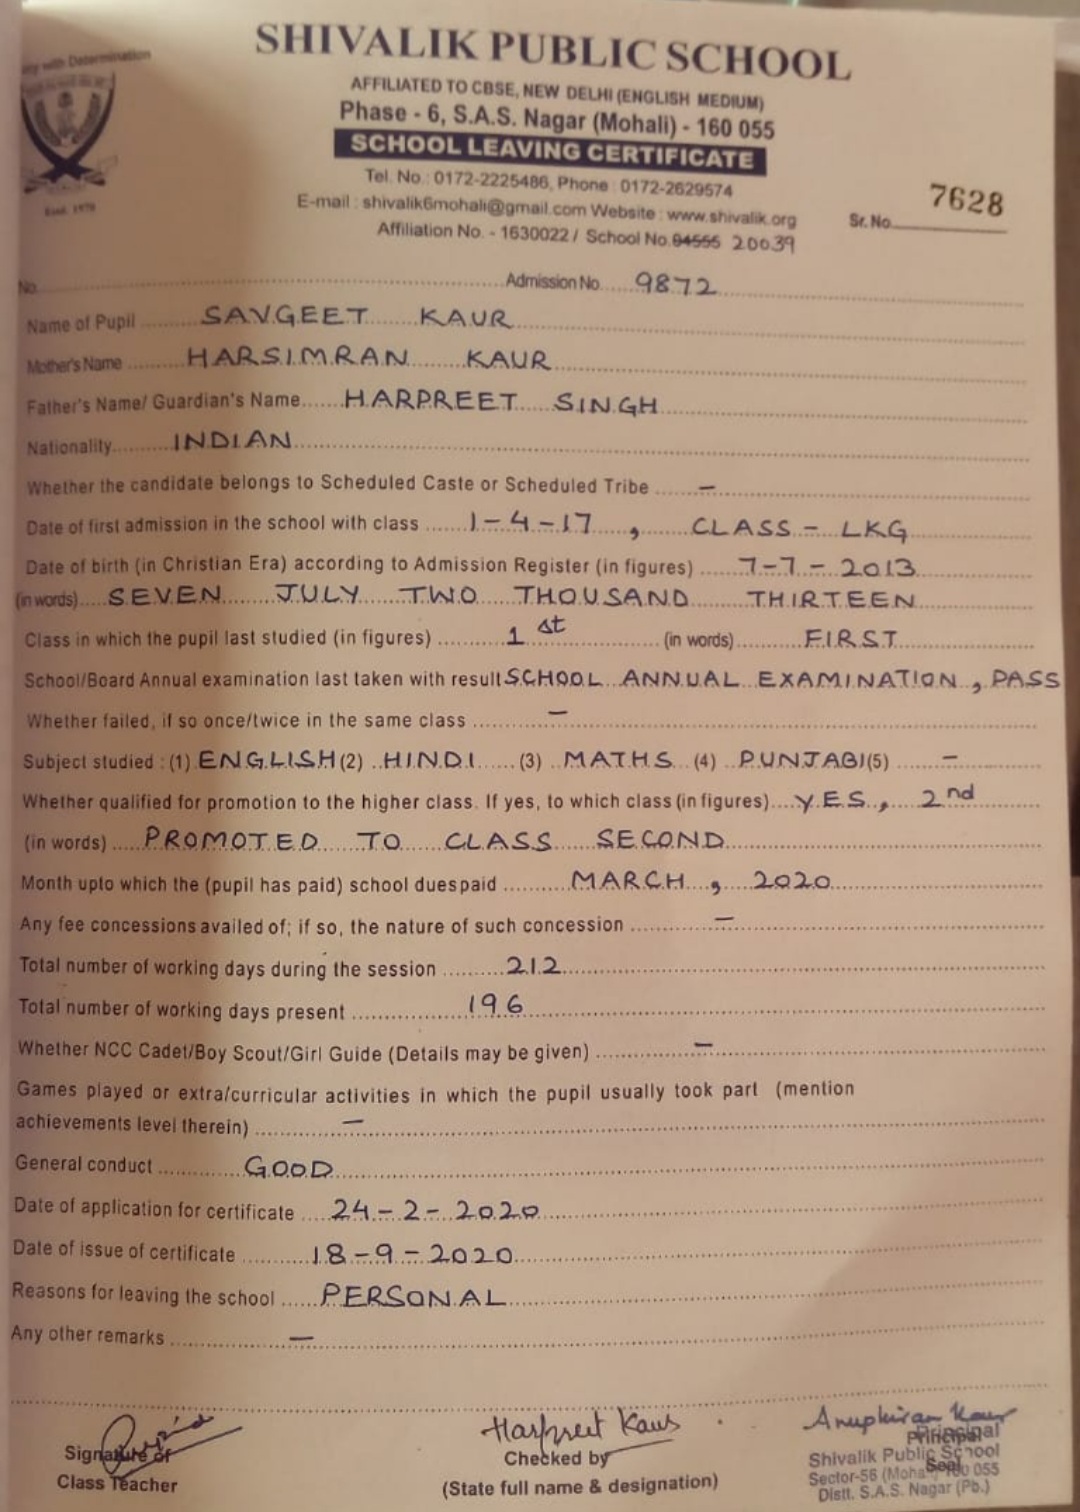 SHIVALIK PUBLIC SCHOOL
with Determination
AFFILIATED TO CBSE, NEW DELHI (ENGLISH MEDIUM)
Phase - 6, S.A.S. Nagar (Mohali) - 160 055
SCHOOL LEAVING CERTIFICATE
Estd. 1970
Tel. No.: 0172-2225486, Phone : 0172-2629574
E-mail : shivalik6mohali@gmail.com Website : www.shivalik.org
Sr. No. 7628
Affiliation No. - 1630022 / School No. 04555 20039
No. Admission No. 9872
Name of Pupil SAVGEET KAUR
Mother's Name HARSIMRAN KAUR
Father's Name/ Guardian's Name HARPREET SINGH
Nationality INDIAN
Whether the candidate belongs to Scheduled Caste or Scheduled Tribe –
Date of first admission in the school with class 1-4-17, CLASS - LKG
Date of birth (in Christian Era) according to Admission Register (in figures) 7-7-2013
(in words) SEVEN JULY TWO THOUSAND THIRTEEN
Class in which the pupil last studied (in figures) 1st (in words) FIRST
School/Board Annual examination last taken with result SCHOOL ANNUAL EXAMINATION, PASS
Whether failed, if so once/twice in the same class –
Subject studied : (1) ENGLISH (2) HINDI (3) MATHS (4) PUNJABI (5) –
Whether qualified for promotion to the higher class. If yes, to which class (in figures) YES, 2nd
(in words) PROMOTED TO CLASS SECOND
Month upto which the (pupil has paid) school dues paid MARCH, 2020
Any fee concessions availed of; if so, the nature of such concession –
Total number of working days during the session 212
Total number of working days present 196
Whether NCC Cadet/Boy Scout/Girl Guide (Details may be given) –
Games played or extra/curricular activities in which the pupil usually took part (mention
achievements level therein) –
General conduct GOOD
Date of application for certificate 24-2-2020
Date of issue of certificate 18-9-2020
Reasons for leaving the school PERSONAL
Any other remarks –
Harpreet Kaur Anupkiran Kaur
Signature of Checked by Principal
Class Teacher (State full name & designation) Seal
Shivalik Public School
Sector-56 (Mohali) 160 055
Distt. S.A.S. Nagar (Pb.)